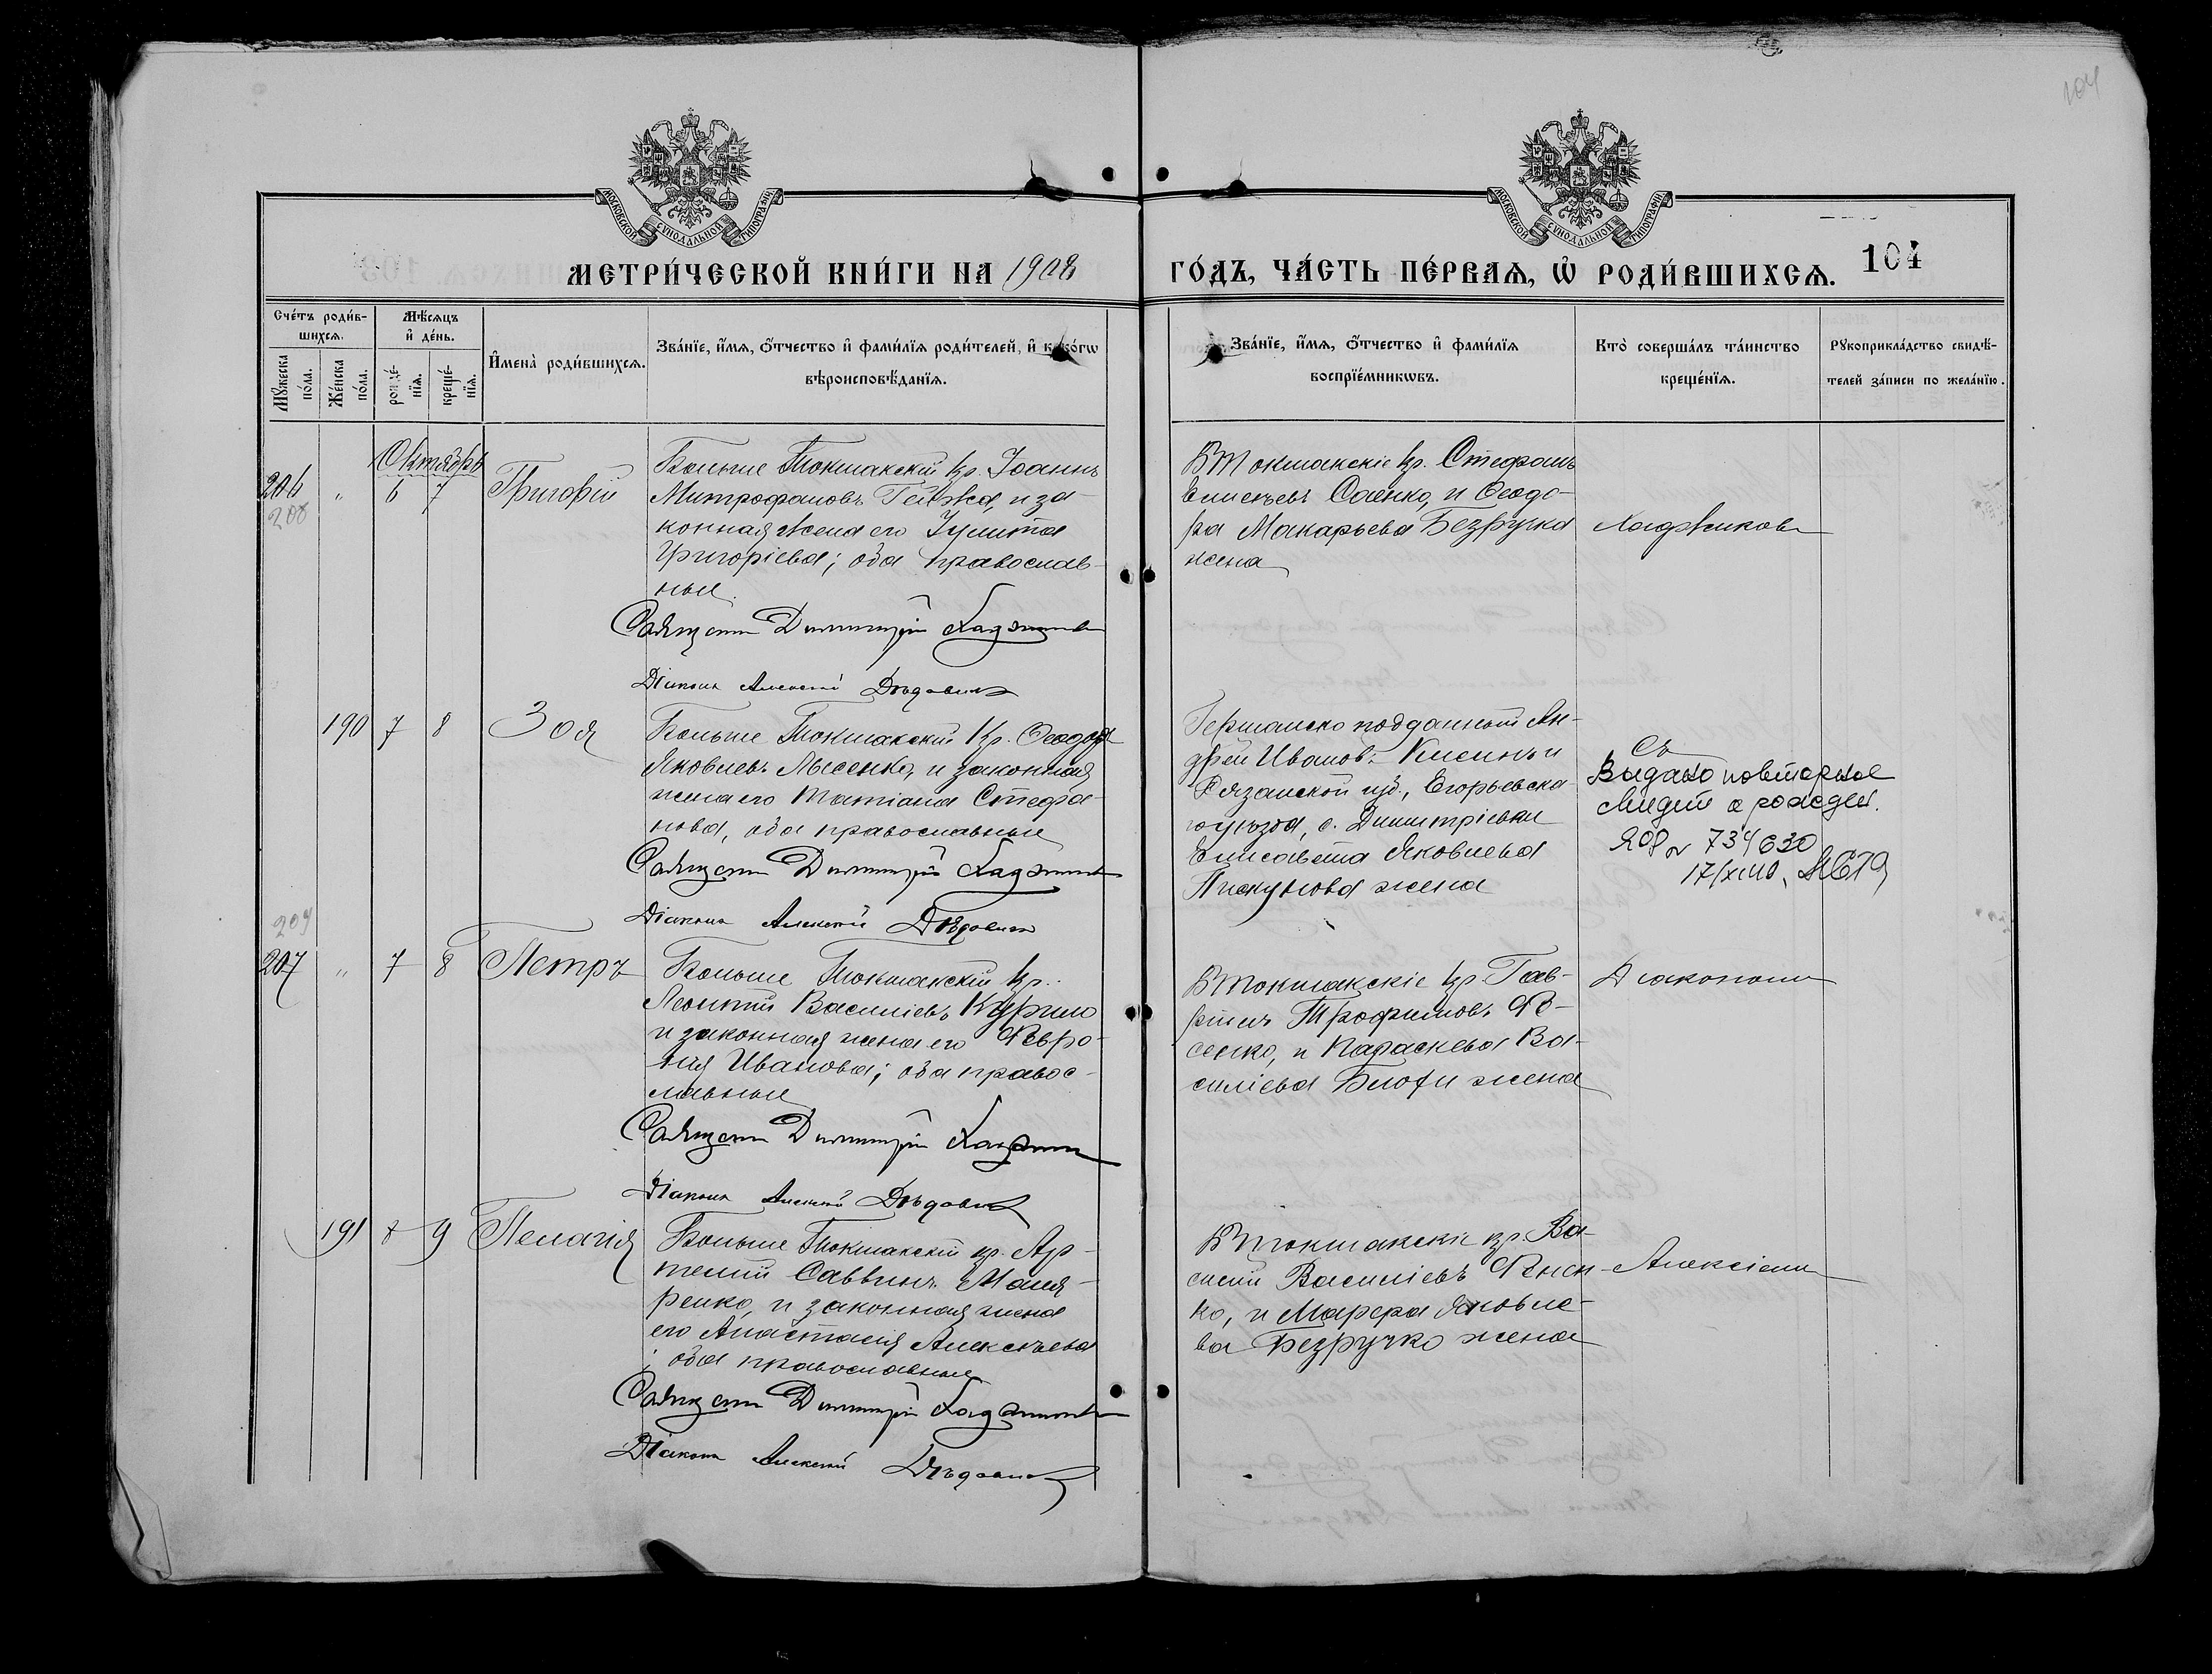 104
МОСКОВСКОЙ СѴНОДАЛЬНОЙ ТИПОГРАФІИ
МОСКОВСКОЙ СѴНОДАЛЬНОЙ ТИПОГРАФІИ
МЕТРИ́ЧЕСКОЙ КНИ́ГИ НА 1908
ГО́ДЪ, ЧА́СТЬ ПЕ́РВАѦ, Ѡ҆ РОДИ́ВШИХСѦ. 104
Сче́тъ роди́в-
шихсѧ.
Мꙋ́жеска по́ла.
Же́нска по́ла.
Мѣ́сѧцъ
и҆ де́нь.
рожде́-нїѧ.
креще́-нїѧ.
И҆мена̀ роди́вшихсѧ.
Зва́нїе, и҆́мѧ, ѻ҆́тчество и҆ фами́лїѧ роди́телей, и҆ како́гѡ
вѣроисповѣ́данїѧ.
Зва́нїе, и҆́мѧ, ѻ҆́тчество и҆ фами́лїѧ
воспрїе́мникѡвъ.
Кто̀ соверша́лъ та́инство
креще́нїѧ.
Рꙋкоприкла́дство свидѣ́-
телей за́писи по жела́нїю.
Октябрь
206 " 6 7 Григорій
208
Больше Токмакскій кр. Іоаннъ
Митрофановъ, и за-
конная жена его Іулита
Григоріева; оба православ-
ные.
Священ Димитрій Хаджиновъ
Діаконъ Алексій Дѣдовичъ
В Токмакскіе кр. Стефанъ
Елисѣевъ Саенко, и Ѳеодо-
ра Макарьева Безручка
жена
Хаджиковъ
190 7 8 Зоя
Больше Токмакскій кр. Ѳеодоръ
Яковлевъ Лысенко, и законная
жена его Татіана Стефа-
нова, оба православные
Священ Димитрій Хаджиновъ
Діаконъ Алексій Дѣдовичъ
Германско подданный Ан-
дрей Ивановъ и
Рязанской губ., Егорьевска-
го уѣзда, с.
Елисавета Яковлева
Пискунова жена
Съ
Видано повторное
свидет о рожден.
ЯОР № 734630
209
207 " 7 8 Петръ
Больше Токмакскій кр.
Леонтій Василіевъ Курило
и законная жена его Февро-
нія Иванова; оба правос-
лавные
Священ Димитрій Хаджиновъ
Діаконъ Алексій Дѣдовичъ
В Токмакскіе кр. Гав-
ріилъ Трофимовъ Фе-
сенко, и Параскева Ва-
силіева жена
Діакономъ
191 8 9 Пелагія
Больше Токмакскій кр. Ар-
темій Саввинъ Маля-
ренко, и законная жена
его Анастасія Алексѣева
; оба православные
Священ Димитрій Хаджиновъ
Діаконъ Алексій Дѣдовичъ
В Токмакскіе кр. Ва-
силій Василіевъ
ко, и Марѳа Яковле-
ва Безручко жена
Алексіемъ